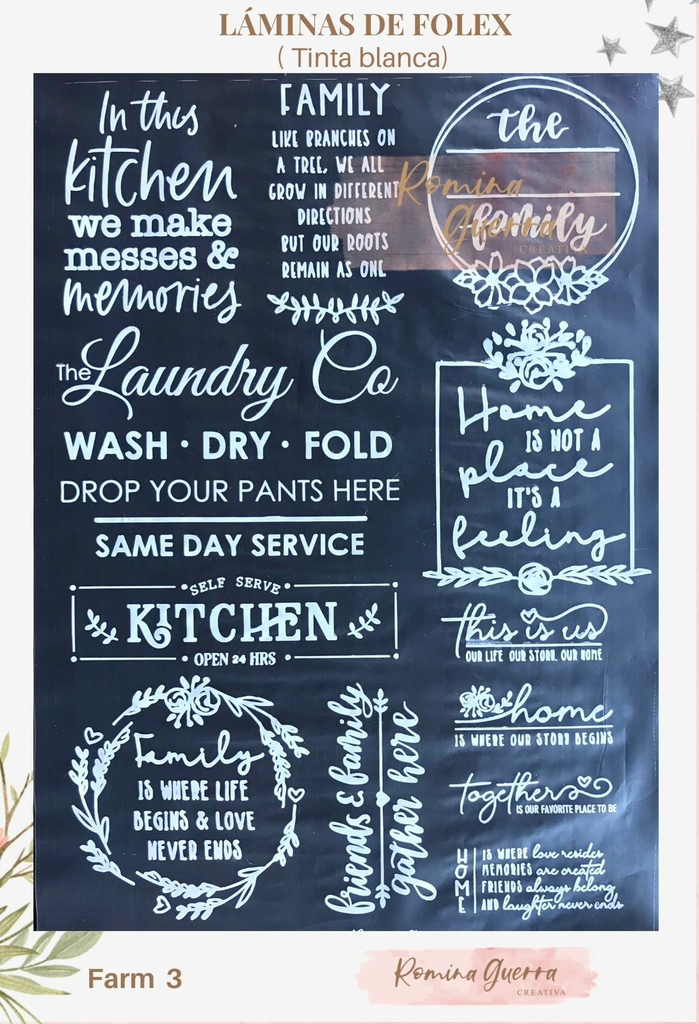 LÁMINAS DE FOLEX
( Tinta blanca)
In this
kitchen
we make
messes &
memories
FAMILY
LIKE BRANCHES ON
A TREE, WE ALL
GROW IN DIFFERENT
DIRECTIONS
BUT OUR ROOTS
REMAIN AS ONE
the
family
Romina
Guerra
CREATIVA
The Laundry Co
WASH · DRY · FOLD
DROP YOUR PANTS HERE
SAME DAY SERVICE
Home
IS NOT A
place
IT'S A
feeling
SELF SERVE
KITCHEN
OPEN 24 HRS
this is us
OUR LIFE OUR STORY. OUR HOME
home
IS WHERE OUR STORY BEGINS
together
IS OUR FAVORITE PLACE TO BE
HOME
IS WHERE love resides
MEMORIES are created
FRIENDS always belong
AND laughter never ends
Family
IS WHERE LIFE
BEGINS & LOVE
NEVER ENDS
friends & family
gather here
Farm 3
Romina Guerra
CREATIVA